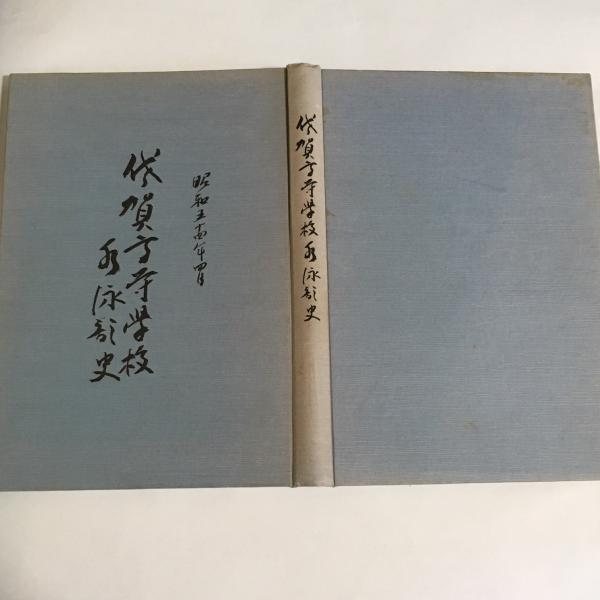 昭和五十四年四月
佐賀高等學校
水泳部史
佐賀高等學校水泳部史